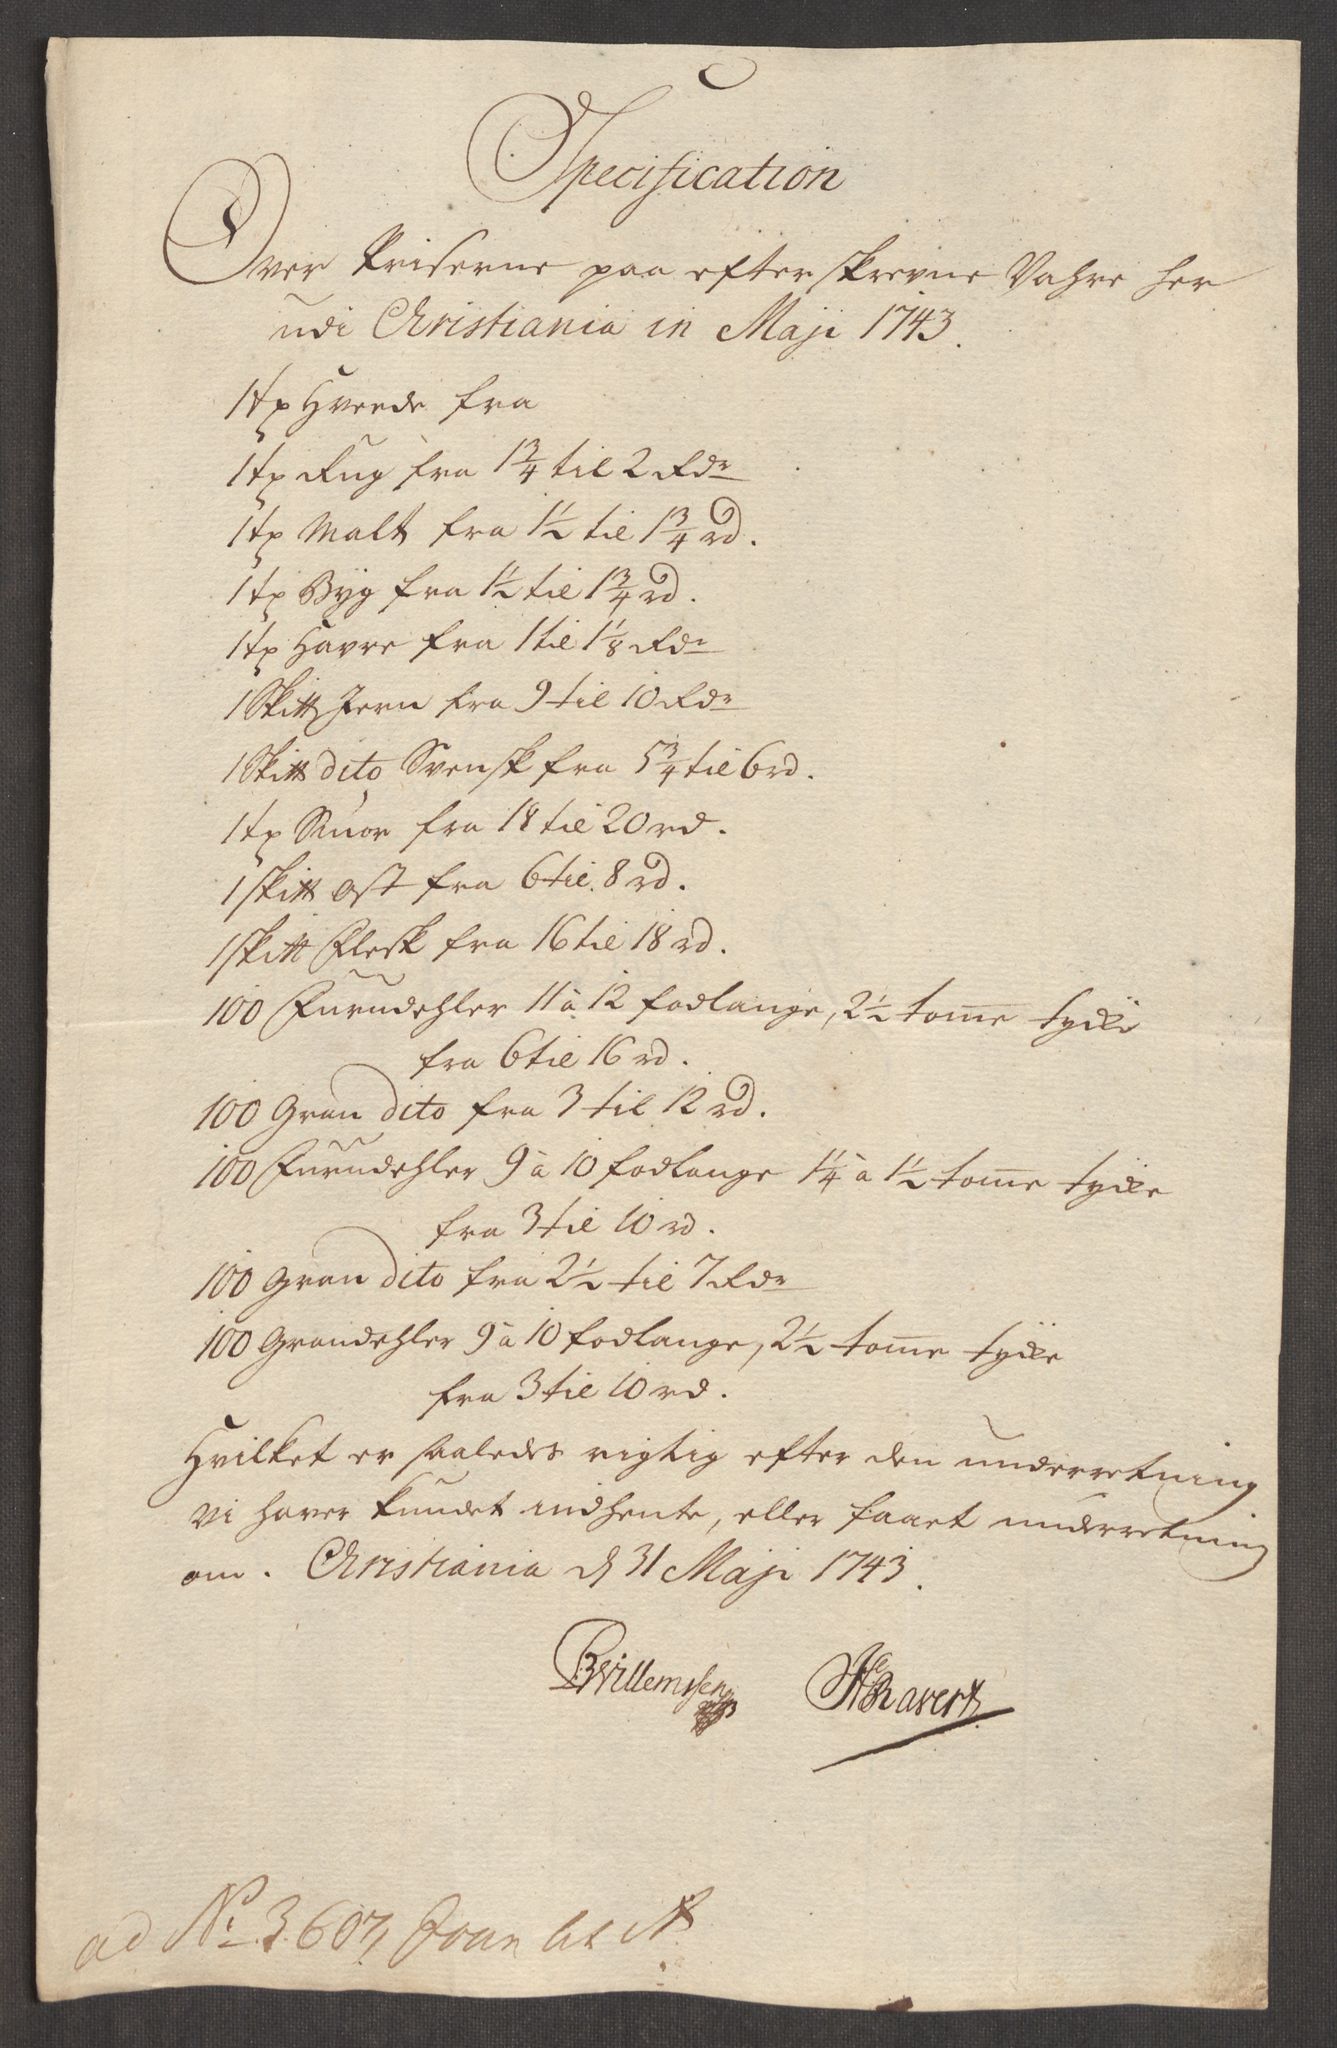 Specification
Over Priserne paa efterskrevne Vahre her
udi Christiania in Maji 1743.
1 tp Hvede fra
1 tp Rug fra 1 3/4 til 2 Rdr
1 tp Malt fra 1 1/2 til 1 3/4 rd.
1 tp Byg fra 1 1/2 til 1 3/4 rd.
1 tp Havre fra 1 til 1 1/8 Rdr
1 Skitt Jern fra 9 til 10 Rdr
1 Skitt dito Svensk fra 5 3/4 til 6 rd.
1 tp Smør fra 18 til 20 rd.
1 skitt Ost fra 6 til 8 rd.
1 skitt Flesk fra 16 til 18 rd.
100 Furudehler 11 à 12 fodlange, 2 1/2 tome tycke
fra 6 til 16 rd.
100 Gran dito fra 3 til 12 rd.
100 Furudehler 9 à 10 fodlange 1 1/4 à 1 1/2 tome tycke
fra 3 til 10 rd.
100 Gran dito fra 2 1/2 til 7 Rdr
100 Grandehler 9 à 10 fodlange, 2 1/2 tome tycke
fra 3 til 10 rd.
Hvilket er saaledes rigtig efter den underretning
vi haver kundet indhente, eller faaet underretning
om. Christiania d 31 Maji 1743.
BWillemssen Ravert
ad No 3607 Joun lit A